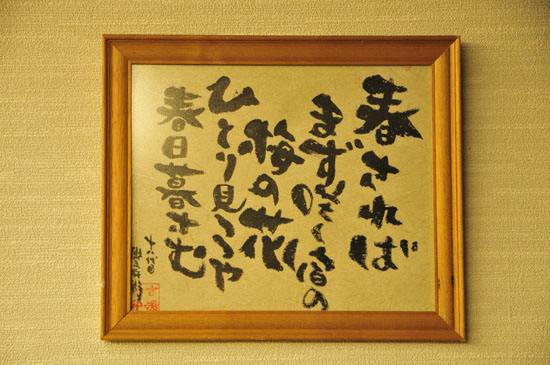 春されば
まずさく宿の
梅の花
ひとり見つつや
春日暮さむ